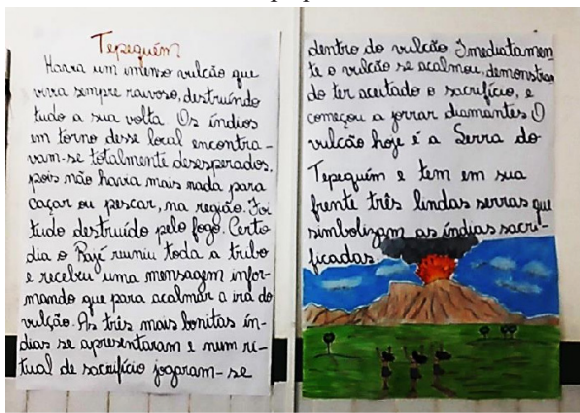 Tepequém
Havia um imenso vulcão que
vivia sempre raivoso, destruíndo
tudo a sua volta. Os índios
em torno desse local encontra-
vam-se totalmente desesperados,
pois não havia mais nada para
caçar ou pescar, na região. Foi
tudo destruído pelo fogo. Certo
dia o Pajé reuniu toda a tribo
e recebeu uma mensagem infor-
mando que para acalmar a ira do
vulcão. As três mais bonitas ín-
dias se apresentaram e num ri-
tual de sacrifício jogaram-se
dentro do vulcão Imediatamen
te o vulcão se acalmou, demonstran
do ter aceitado o sacrifício, e
começou a jorrar diamantes. O
vulcão hoje é a Serra do
Tepequém e tem em sua
frente três lindas serras que
simbolizam as índias sacri-
ficadas